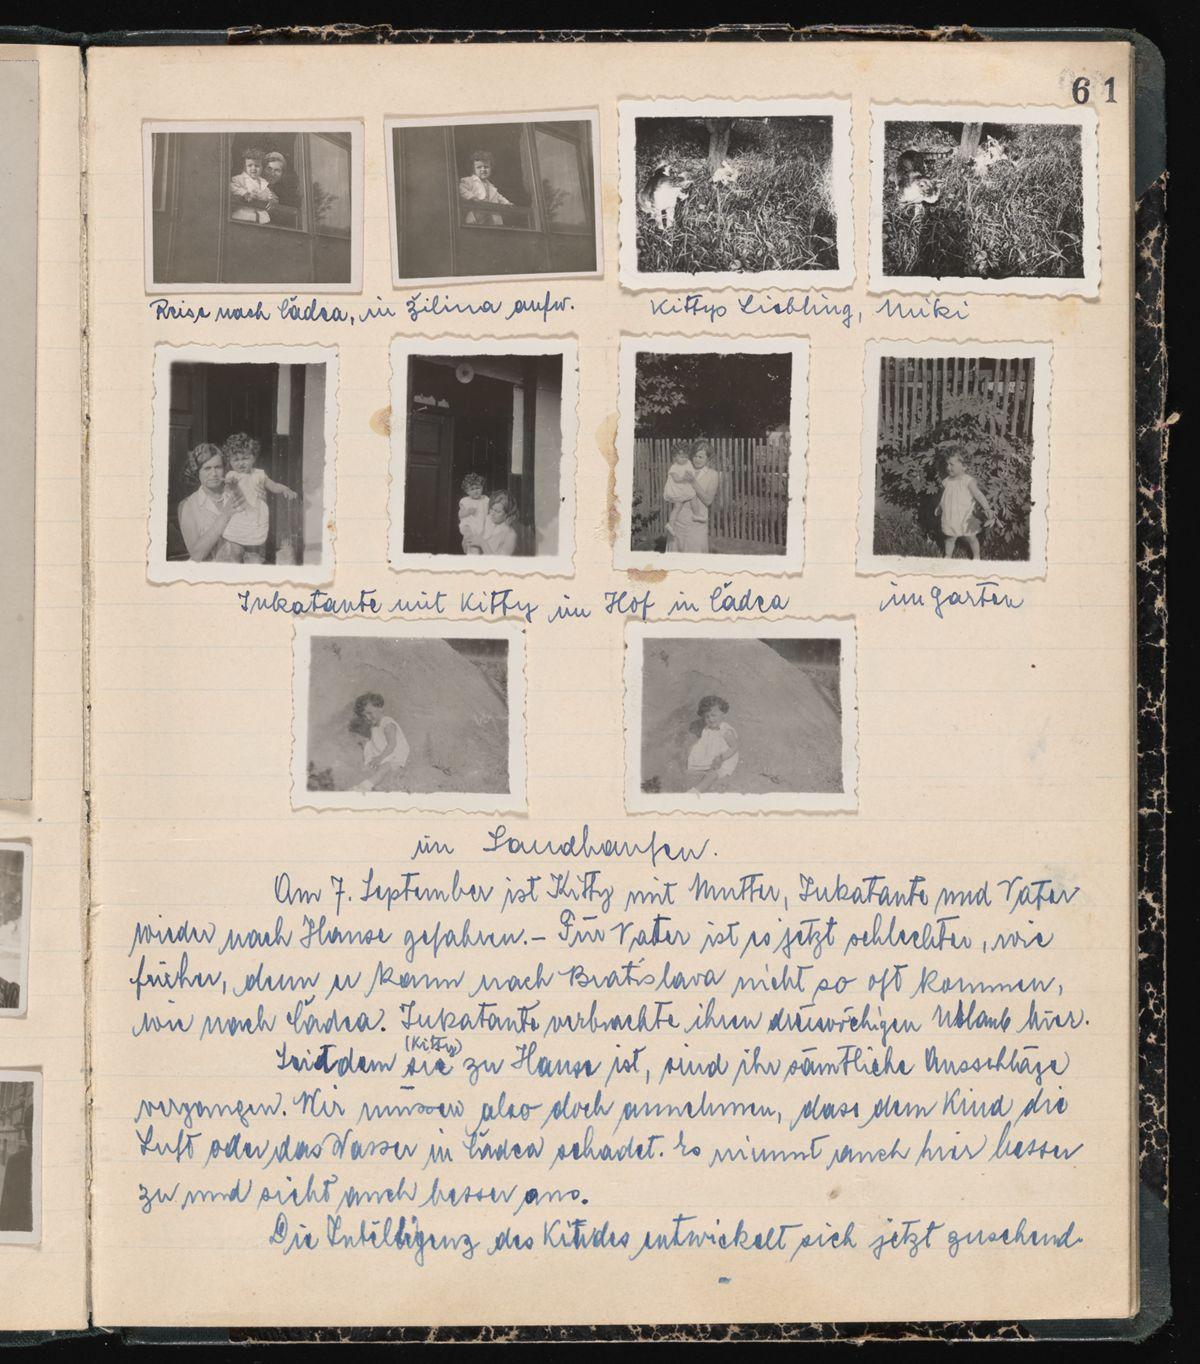 61
Reise nach Čádca, in Žilina aufw.
Kittys Liebling, Miki
Inkatante mit Kitty im Hof in Čádca
im Garten
im Sandhaufen.
Am 7. September ist Kitty mit Mutter, Inkatante und Vater
wieder nach Hause gefahren. – Für Vater ist es jetzt schlechter, wie
früher, denn er kann nach Bratislava nicht so oft kommen,
wie nach Čádca. Inkatante verbrachte ihren dreiwöchigen Urlaub hier.
Seitdem sie (Kitty) zu Hause ist, sind ihr sämtliche Ausschläge
vergangen. Wir müssen also doch annehmen, dass dem Kind die
Luft oder das Wasser in Čádca schadet. Es nimmt auch hier besser
zu und sieht auch besser aus.
Die Intelligenz des Kindes entwickelt sich jetzt zusehend.